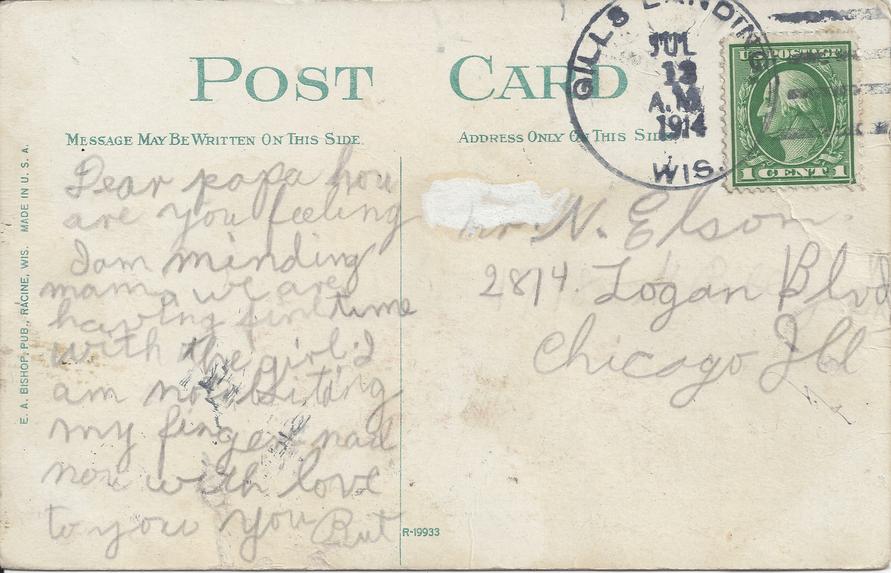 POST CARD
MESSAGE MAY BE WRITTEN ON THIS SIDE.
ADDRESS ONLY ON THIS SIDE
GILLS LANDING
JUL
13
A.M.
1914
WIS.
U.S. POSTAGE
1 CENT 1
E. A. BISHOP, PUB., RACINE, WIS. MADE IN U. S. A.
Dear papa how
are you feeling
I am minding
mama we are
having fin time
with the girl. I
am not biting
my finger nail
now with love
to you you Rut
Mr. N. Elson.
2814. Logan Blvd
Chicago Ill
R-19933